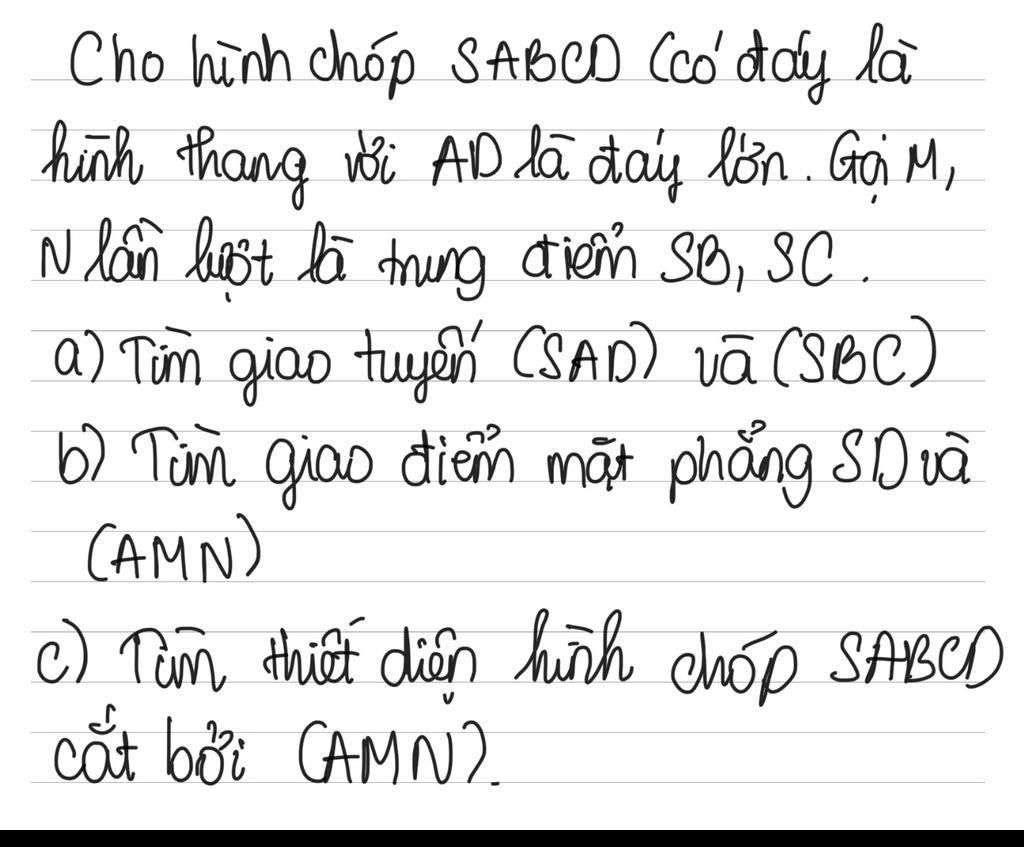 Cho hình chóp SABCD (có đáy là
hình thang với AD là đáy lớn. Gọi M,
N lần lượt là trung điểm SB, SC.
a) Tìm giao tuyến (SAD) và (SBC)
b) Tìm giao điểm mặt phẳng SD và
(AMN)
c) Tìm thiết diện hình chóp SABCD
cắt bởi (AMN).